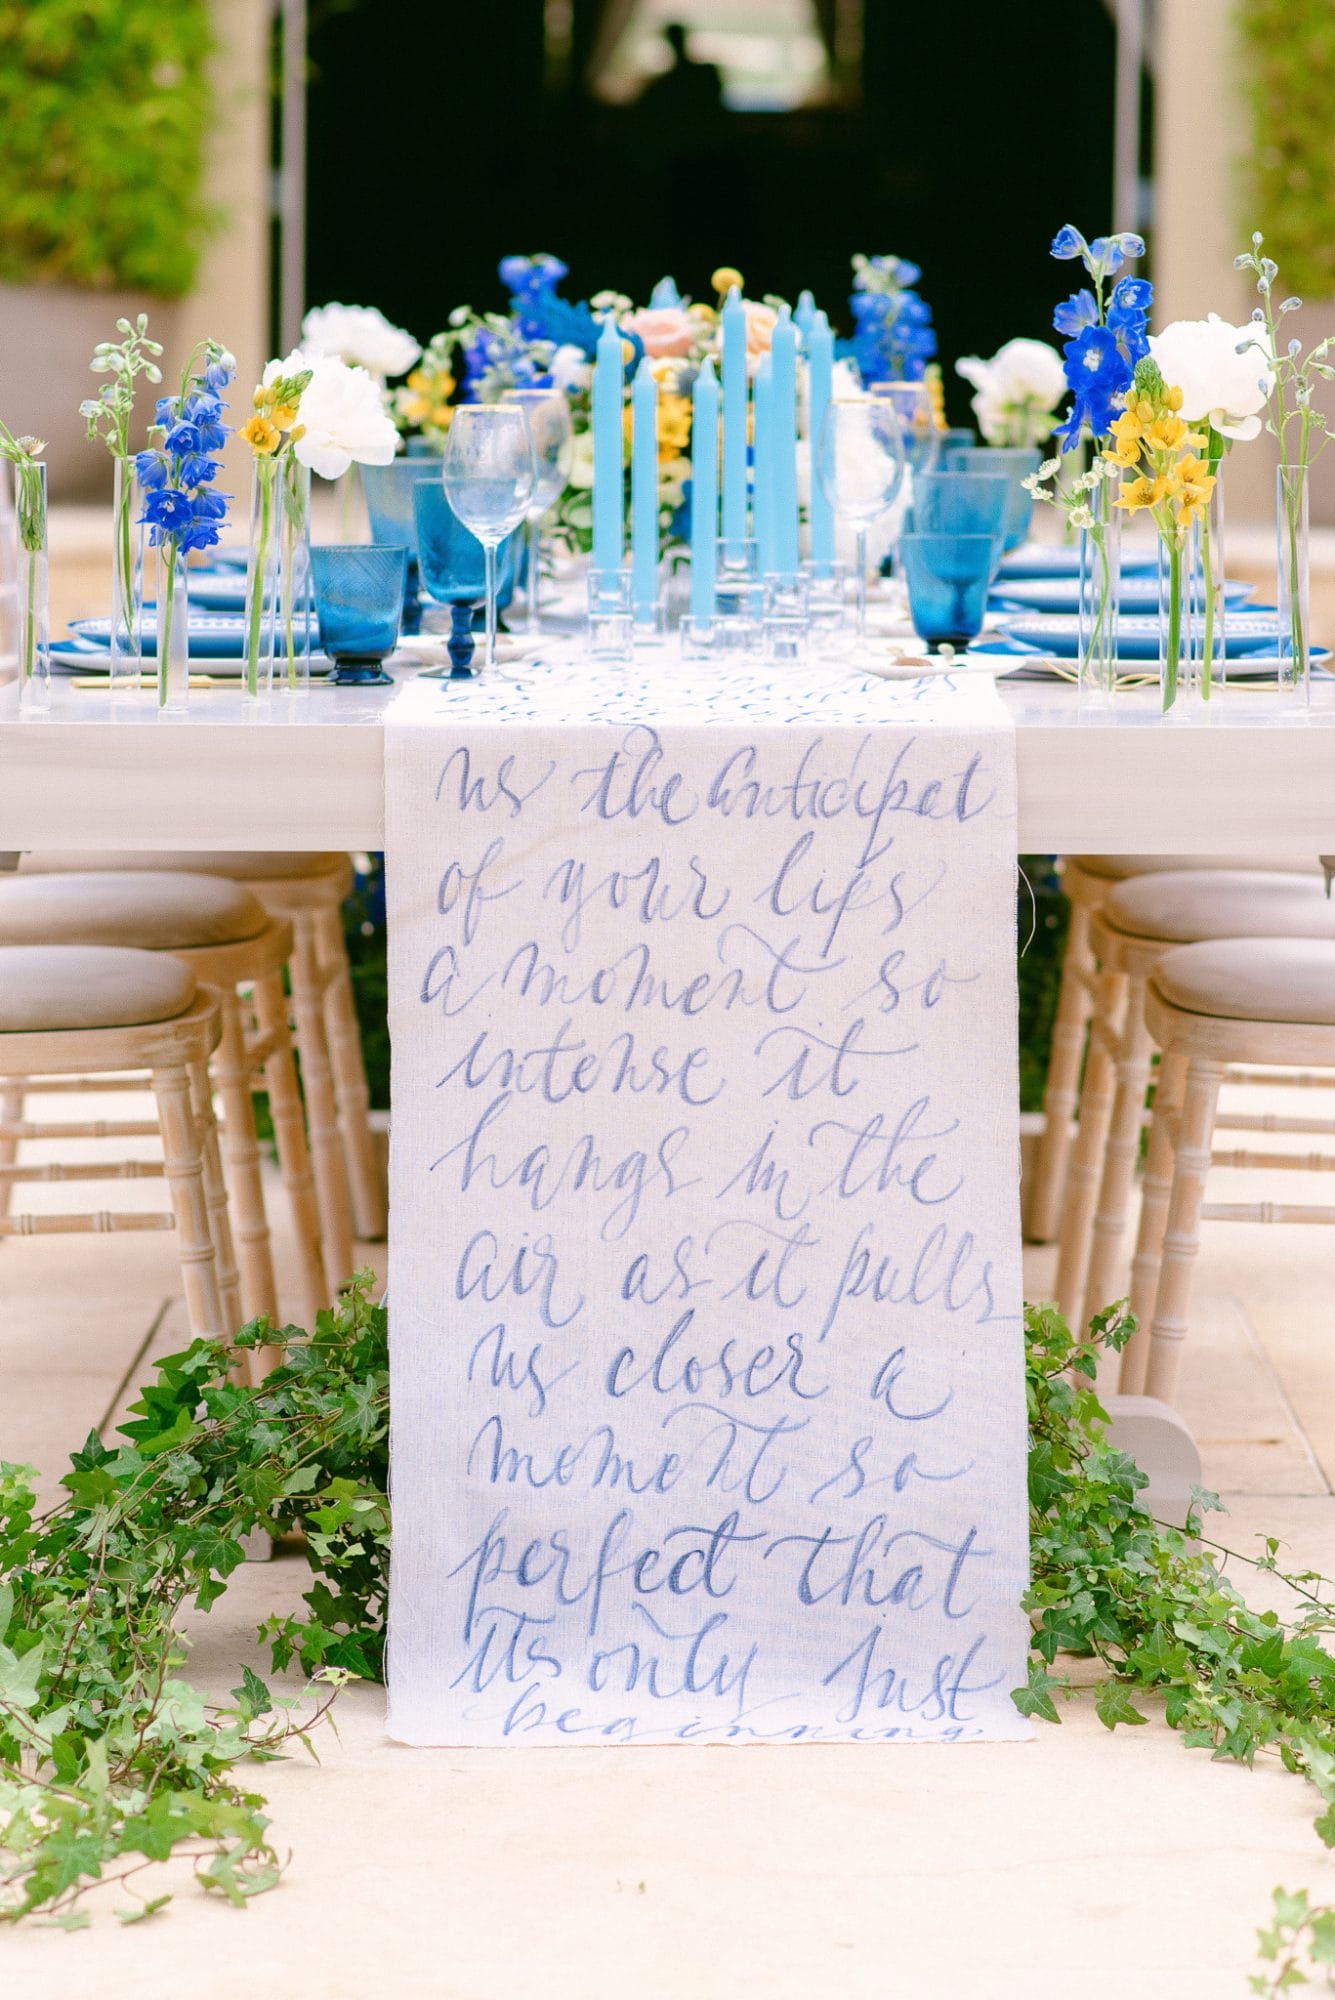 us the anticipat
of your lips
a moment so
intense it
hangs in the
air as it pulls
us closer a
moment so
perfect that
its only just
beginning